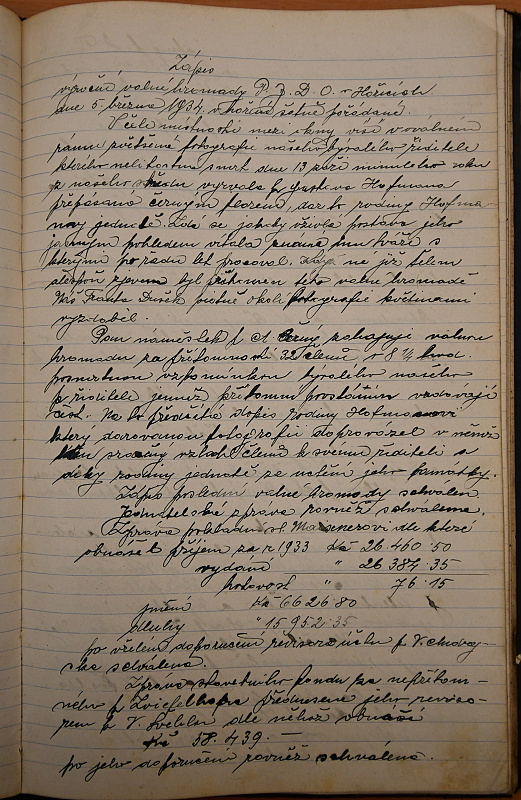 Zápis
výroční valné hromady P. J. D. O. v Hořicích
dne 5. března 1934. v
V čele místnosti mezi okny visí v oválném
rámu fotografie našeho bývalého ředitele
kterého nelítostná smrt dne 13 září minulého roku
z našeho středu vyrvala p. Gustava Hofmana
přepásaná černým florem, dar to rodiny Hofma-
novy jednotě. Zdá se jakoby oživlá postava jeho
jasným pohledem vítala známé mu tváře s
kterými po řadu let pracoval. ne již tělem
alespoň zjevem byl přítomen této valné hromadě
Náš Franta Dusek okolí fotografie květinami
vyzdobil.
Pan náměstek p. A. Černý zahajuje valnou
hromadu za přítomnosti 32 členů v 8 1/4 hod.
vzpomínkou bývalého našeho
p. ředitele jemuž přítomní povstáním vzdávají
čest. Na to předčítá dopis rodiny Hofmanovi
který darovanou fotografii doprovázel v němž
vztah členů k svému řediteli a
díky rodiny jednotě za jeho památky.
Zápis poslední valné hromady schválen
Jednatelova zpráva rovněž schválena.
Zpráva pokladní dle které
obnášel příjem za r. 1933 Kč 26.460.50
vydání " 26 384.35
hotovost " 76.15
jmění Kč 6626.80
dluhy " 15952.35
po doporučení revisora účtů p. V.
ska schválena.
Zpráva stavebního fondu za nepřítom-
ného p. přednesena jeho reviso-
rem p. V. dle něhož obnáší
Kč 58.439.—
po jeho doporučení rovněž schválena.